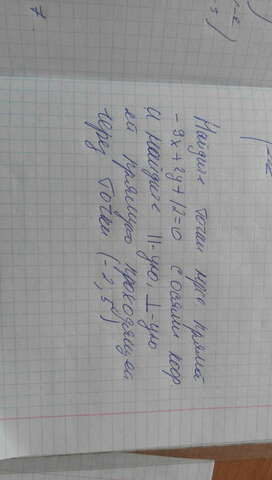 Найдите точки пере прямой
-9x+2y+12=0 с осями коор.
И найдите ||-ую, ⊥-ую
ей прямую проходящей
через точки (-2,5)
7.